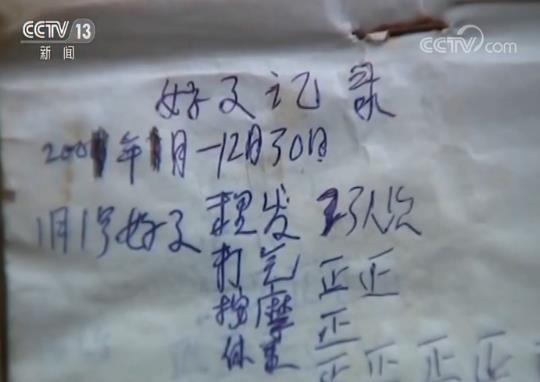 CCTV 13
新闻
CCTV.com
好又记录
2001年1月-12月30日
1月1号好又 理发 23人次
打气 正正
按摩 正
休息 正正正正正